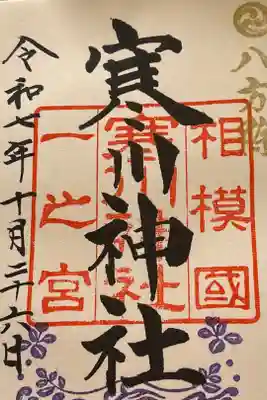 八方除
相模國
寒川神社
一之宮
寒川神社
令和七年十月二十六日